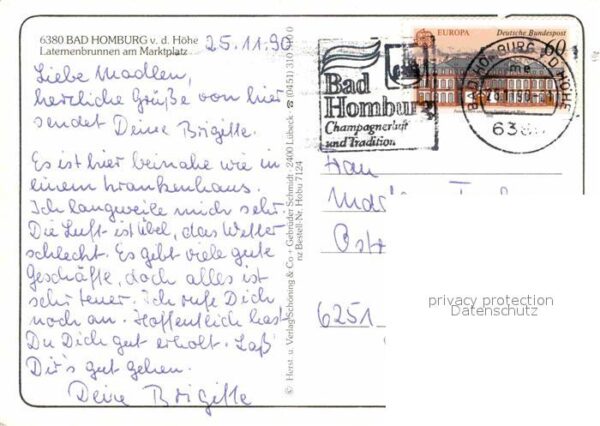 6380 BAD HOMBURG v. d. Höhe
Laternenbrunnen am Marktplatz
25.11.90
Liebe Madlen,
herzliche Grüße von hier
sendet Deine Brigitte.
Es ist hier beinahe wie in
einem Krankenhaus.
Ich langweile mich sehr.
Die Luft ist übel, das Wetter
schlecht. Es gibt viele gute
Geschäfte, doch alles ist
sehr teuer. Ich rufe Dich
noch an. Hoffentlich hast
Du Dich gut erholt. Laß
Dir's gut gehen.
Deine Brigitte
© Herst. u. Verlag Schöning & Co + Gebrüder Schmidt · 2400 Lübeck · ☎ (0451) 310 310 0
nz Bestell-Nr. Hobu 7124
EUROPA Deutsche Bundespost
60
Bad
Homburg
Champagnerluft
und Tradition
BAD HOMBURG V D HÖHE
me
638
6251
privacy protection
Datenschutz